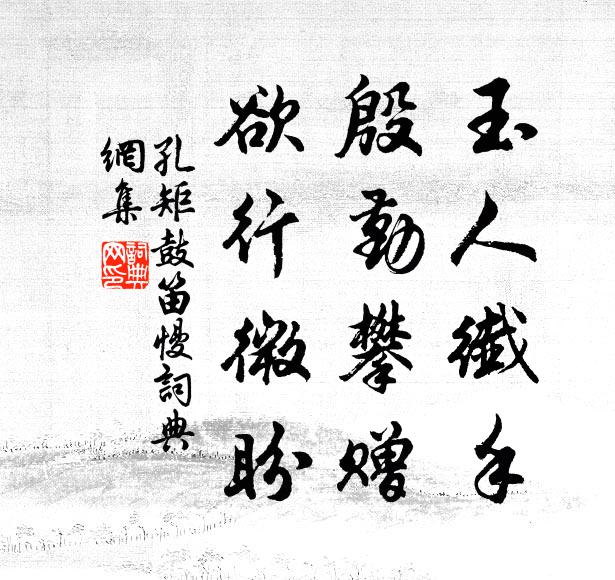 玉人纖手
殷勤攀贈
欲行微盼
孔矩鼓笛慢詞典
網集
詞典
网印